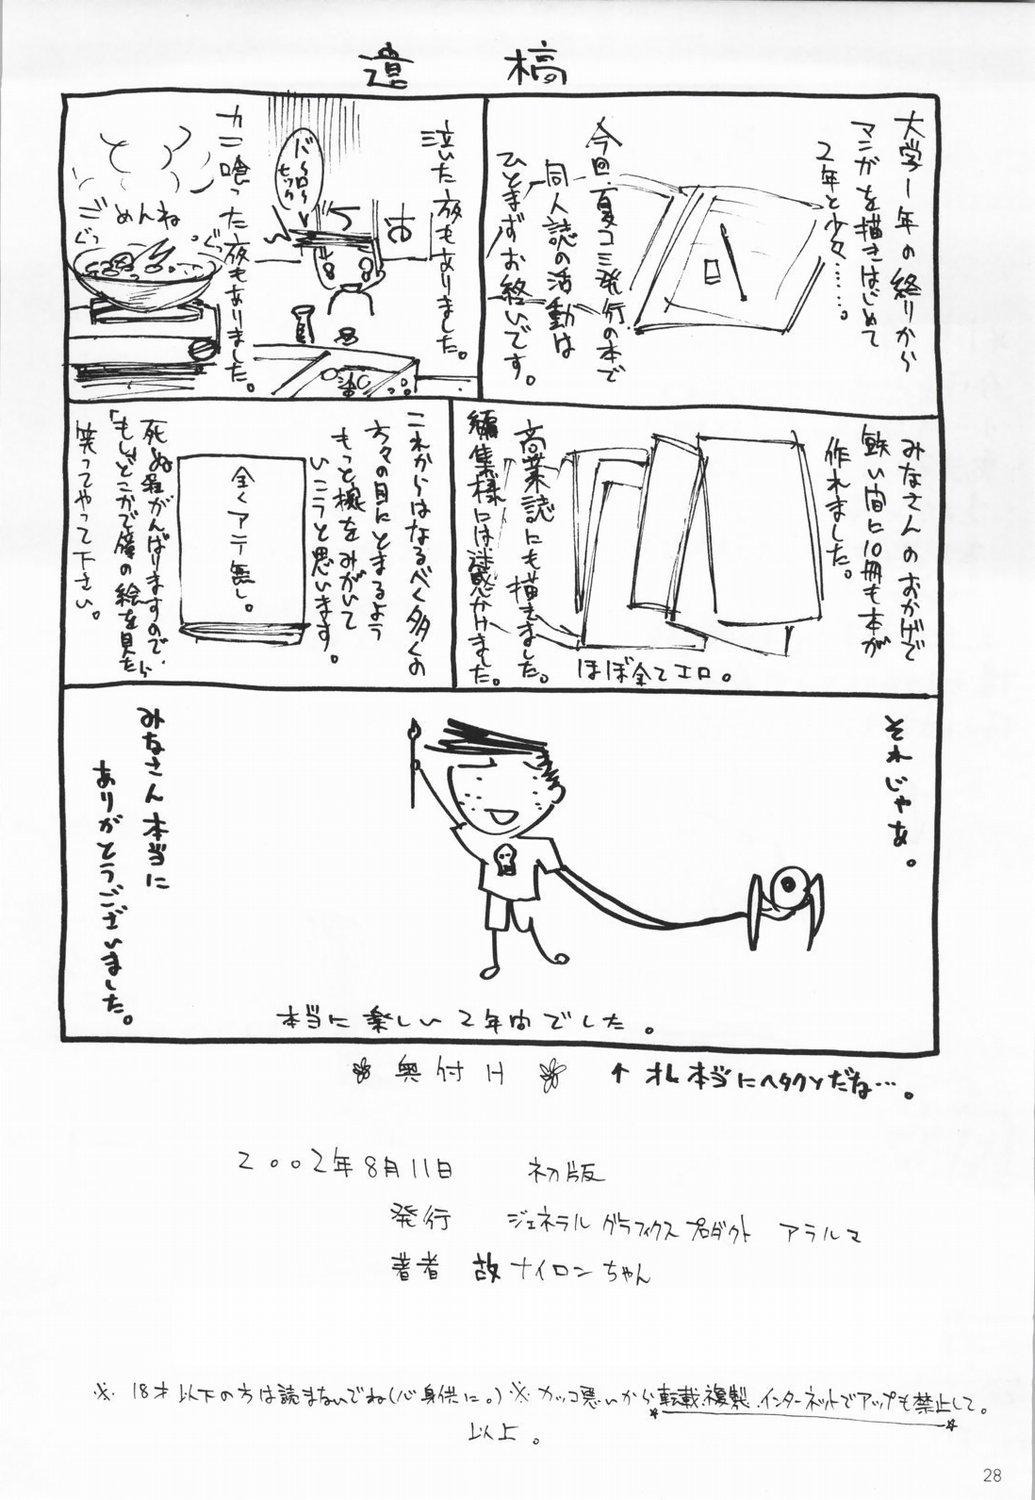 遺稿
大学一年の終りから
マンガを描きはじめて
2年と少々……。
今回、夏コミ発行の本で
同人誌の活動は
ひとまずお終いです。
泣いた夜もありました。
バーロー
ヒック
カニ喰った夜もありました。
ごめんね
ぐっ
ぐっ
みなさんのおかげで
短い間に10冊も本が
作れました。
商業誌にも描きました。
編集様には迷惑かけました。
ほぼ全てエロ。
これからはなるべく多くの
方々の目にとまるよう
もっと腕をみがいて
いこうと思います。
全くアテ無し。
死ぬ程がんばりますので、
「もしどこかで僕の絵を見たら
笑ってやって下さい。
それじゃあ。
みなさん本当に
ありがとうございました。
本当に楽しい2年間でした。
奥付H
↑オレ本当にヘタクソだね…。
2002年8月11日 初版
発行 ジェネラルグラフィクスプロダクト アラルマ
著者 故ナイロンちゃん
※18才以下の方は読まないでね(心身供に。)※カッコ悪いから転載、複製、インターネットでアップも禁止して。
以上。
28